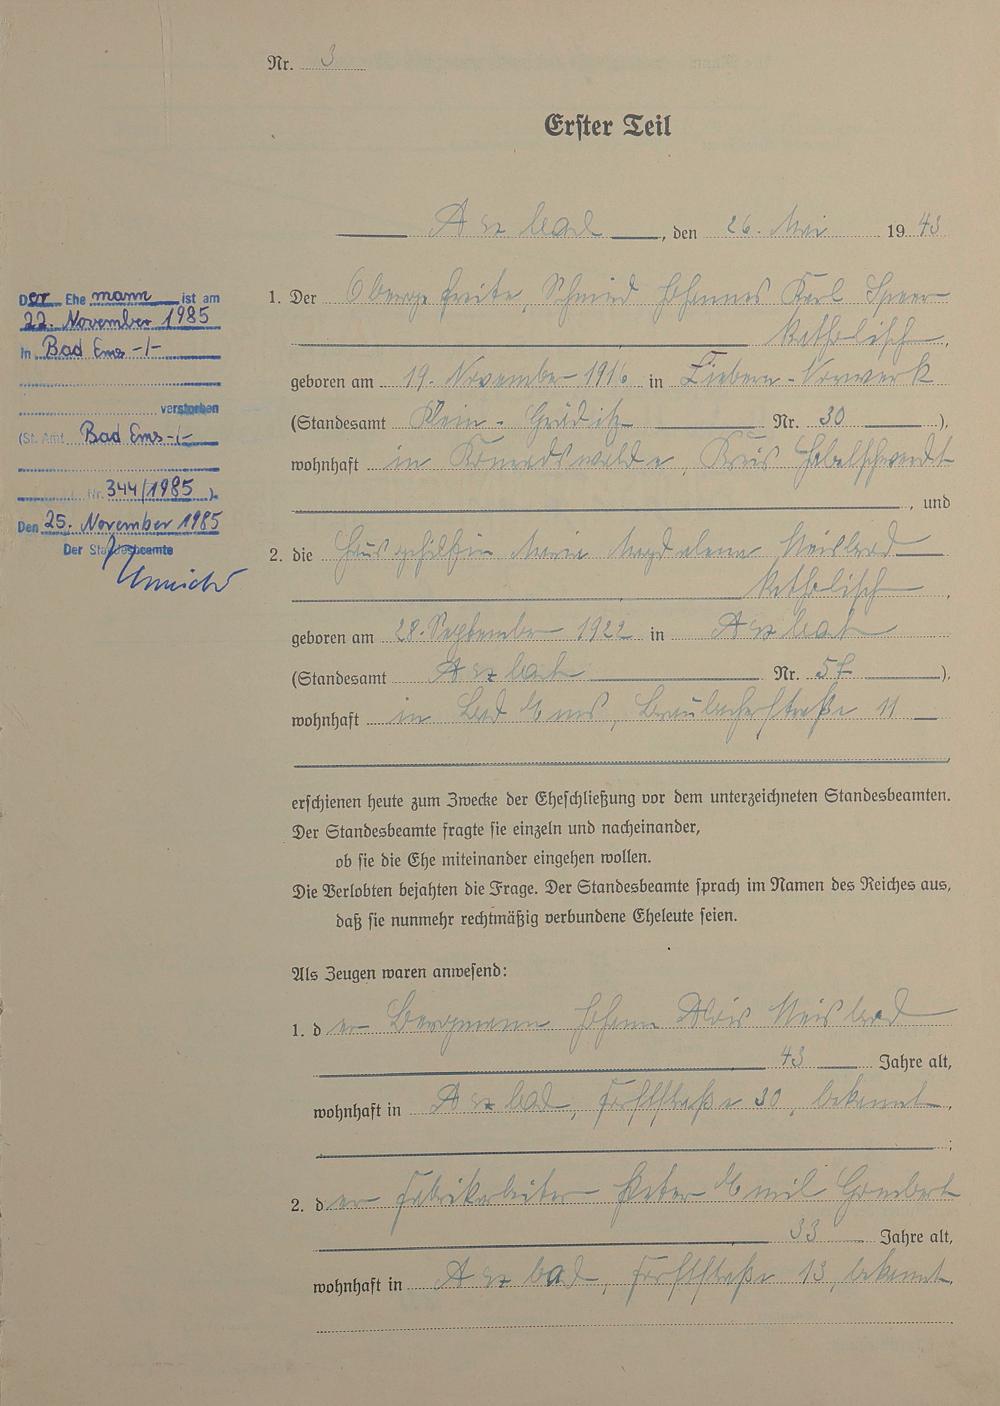 Nr. 3
Erster Teil
Arzbach, den 26. Mai 1943
Der Ehemann ist am
22. November 1985
in Bad Ems -/-
verstorben
(St. Amt Bad Ems -/-
Nr. 344/1985).
Den 25. November 1985
Der Standesbeamte
1. Der Obergefreite, Schmied Johannes Karl Speer
katholisch,
geboren am 19. November 1916 in Vorwerk
(Standesamt Klein-Gräditz Nr. 30),
wohnhaft in Konradswalde, Kreis Habelschwerdt
, und
2. die Hausgehilfin Maria Magdalena Meisbach
katholisch,
geboren am 28. September 1922 in Arzbach
(Standesamt Arzbach Nr. 57),
wohnhaft in Bad Ems, Braubacherstraße 11
erschienen heute zum Zwecke der Eheschließung vor dem unterzeichneten Standesbeamten.
Der Standesbeamte fragte sie einzeln und nacheinander,
ob sie die Ehe miteinander eingehen wollen.
Die Verlobten bejahten die Frage. Der Standesbeamte sprach im Namen des Reiches aus,
daß sie nunmehr rechtmäßig verbundene Eheleute seien.
Als Zeugen waren anwesend:
1. der Bergmann Johann Alois Meisbach
43 Jahre alt,
wohnhaft in Arzbach, 30, bekannt,
;
2. der Fabrikarbeiter Peter Emil Gombert
33 Jahre alt,
wohnhaft in Arzbach, 13, bekannt.